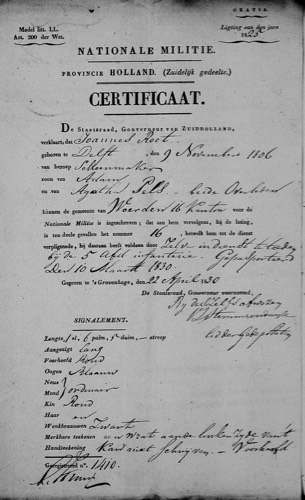 GRATIS.
Model litt. LL.
Art. 200 der Wet.
Ligting van den jare
1825
NATIONALE MILITIE.
PROVINCIE HOLLAND. (Zuidelijk gedeelte.)
CERTIFICAAT.
De Staatsraad, Gouverneur van Zuidholland,
verklaart, dat Joannes Root
geboren te Delft, den 9 November 1806
van beroep
zoon van Adam
en van Agatha Pell beide Overleden
binnen de gemeente van Woerden 16 Kanton voor de
Nationale Militie is ingeschreven; dat aan hem vervolgens, bij de loting,
is ten deele gevallen het nommer 16, hetwelk hem tot de dienst
verpligtende, hij daaraan heeft voldaan door Zelve in dienst te
bij de 5 Afd infanterie. Gepasporteerd
Den 10 Maart 1830.
Gegeven te 's Gravenhage, den 22 April 1830
De Staatsraad, Gouverneur voornoemd,
Bij deszelfs afwezen
SIGNALEMENT.
Lengte, 1 el, 6 palm, 5 duim, streep
Aangezigt lang
Voorhoofd rond
Oogen Blaauw
Neus
Mond ordinair
Kin Rond
Haar en
Wenkbraauwen Zwart
Merkbare teekenen een Wrat aan de linker zijde van't
Handteekening Kan niet Schrijven. Voorhoofd
Geregistreerd n°. 1410.